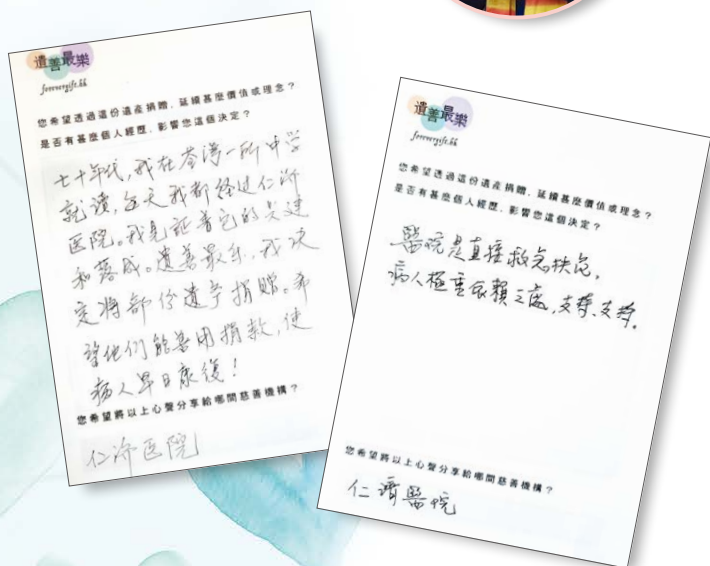 遺善最樂
forevergift.hk
您希望透過這份遺產捐贈，延續甚麼價值或理念？
是否有甚麼個人經歷，影響您這個決定？
七十年代，我在荃湾一所中学
就读，每天我都经过仁济
医院。我见证着它的兴建
和落成。遗善最乐，我决
定将部份遗产捐赠。希
望他们能善用捐款，使
病人早日康復！
您希望將以上心聲分享給哪間慈善機構？
仁济医院
遺善最樂
forevergift.hk
您希望透過這份遺產捐贈，延續甚麼價值或理念？
是否有甚麼個人經歷，影響您這個決定？
醫院是直接救急扶危，
病人極重依賴之處，支持、支持。
您希望將以上心聲分享給哪間慈善機構？
仁濟醫院